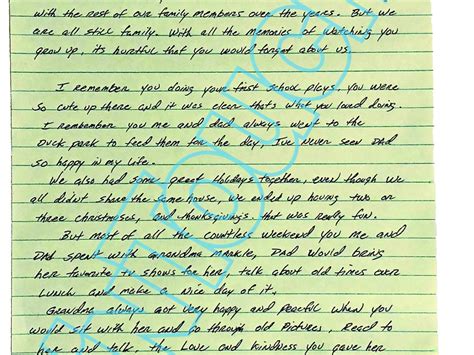 with the rest of our family members over the years. But we
are all still family. With all the memories of watching you
grow up, its hurtful that you would forget about us.
I remember you doing your first school plays, you were
so cute up there and it was clear thats what you loved doing.
I remember you me and dad always went to the
Duck park to feed them for the day, I've Never seen Dad
so happy in my life.
We also had some great Holidays together, even though we
all didnt share the same house, we ended up having two or
three christmases, and thanksgivings. that was really fun.
But most of all the countless weekend you me and
Dad spent with Grandma Markle, Dad would bring
her favorite tv shows for her, talk about old times over
Lunch and make a nice day of it.
Grandma always got very happy and peacful when you
would sit with her and go through old Pictures, Read to
her and talk, the Love and kindness you gave her